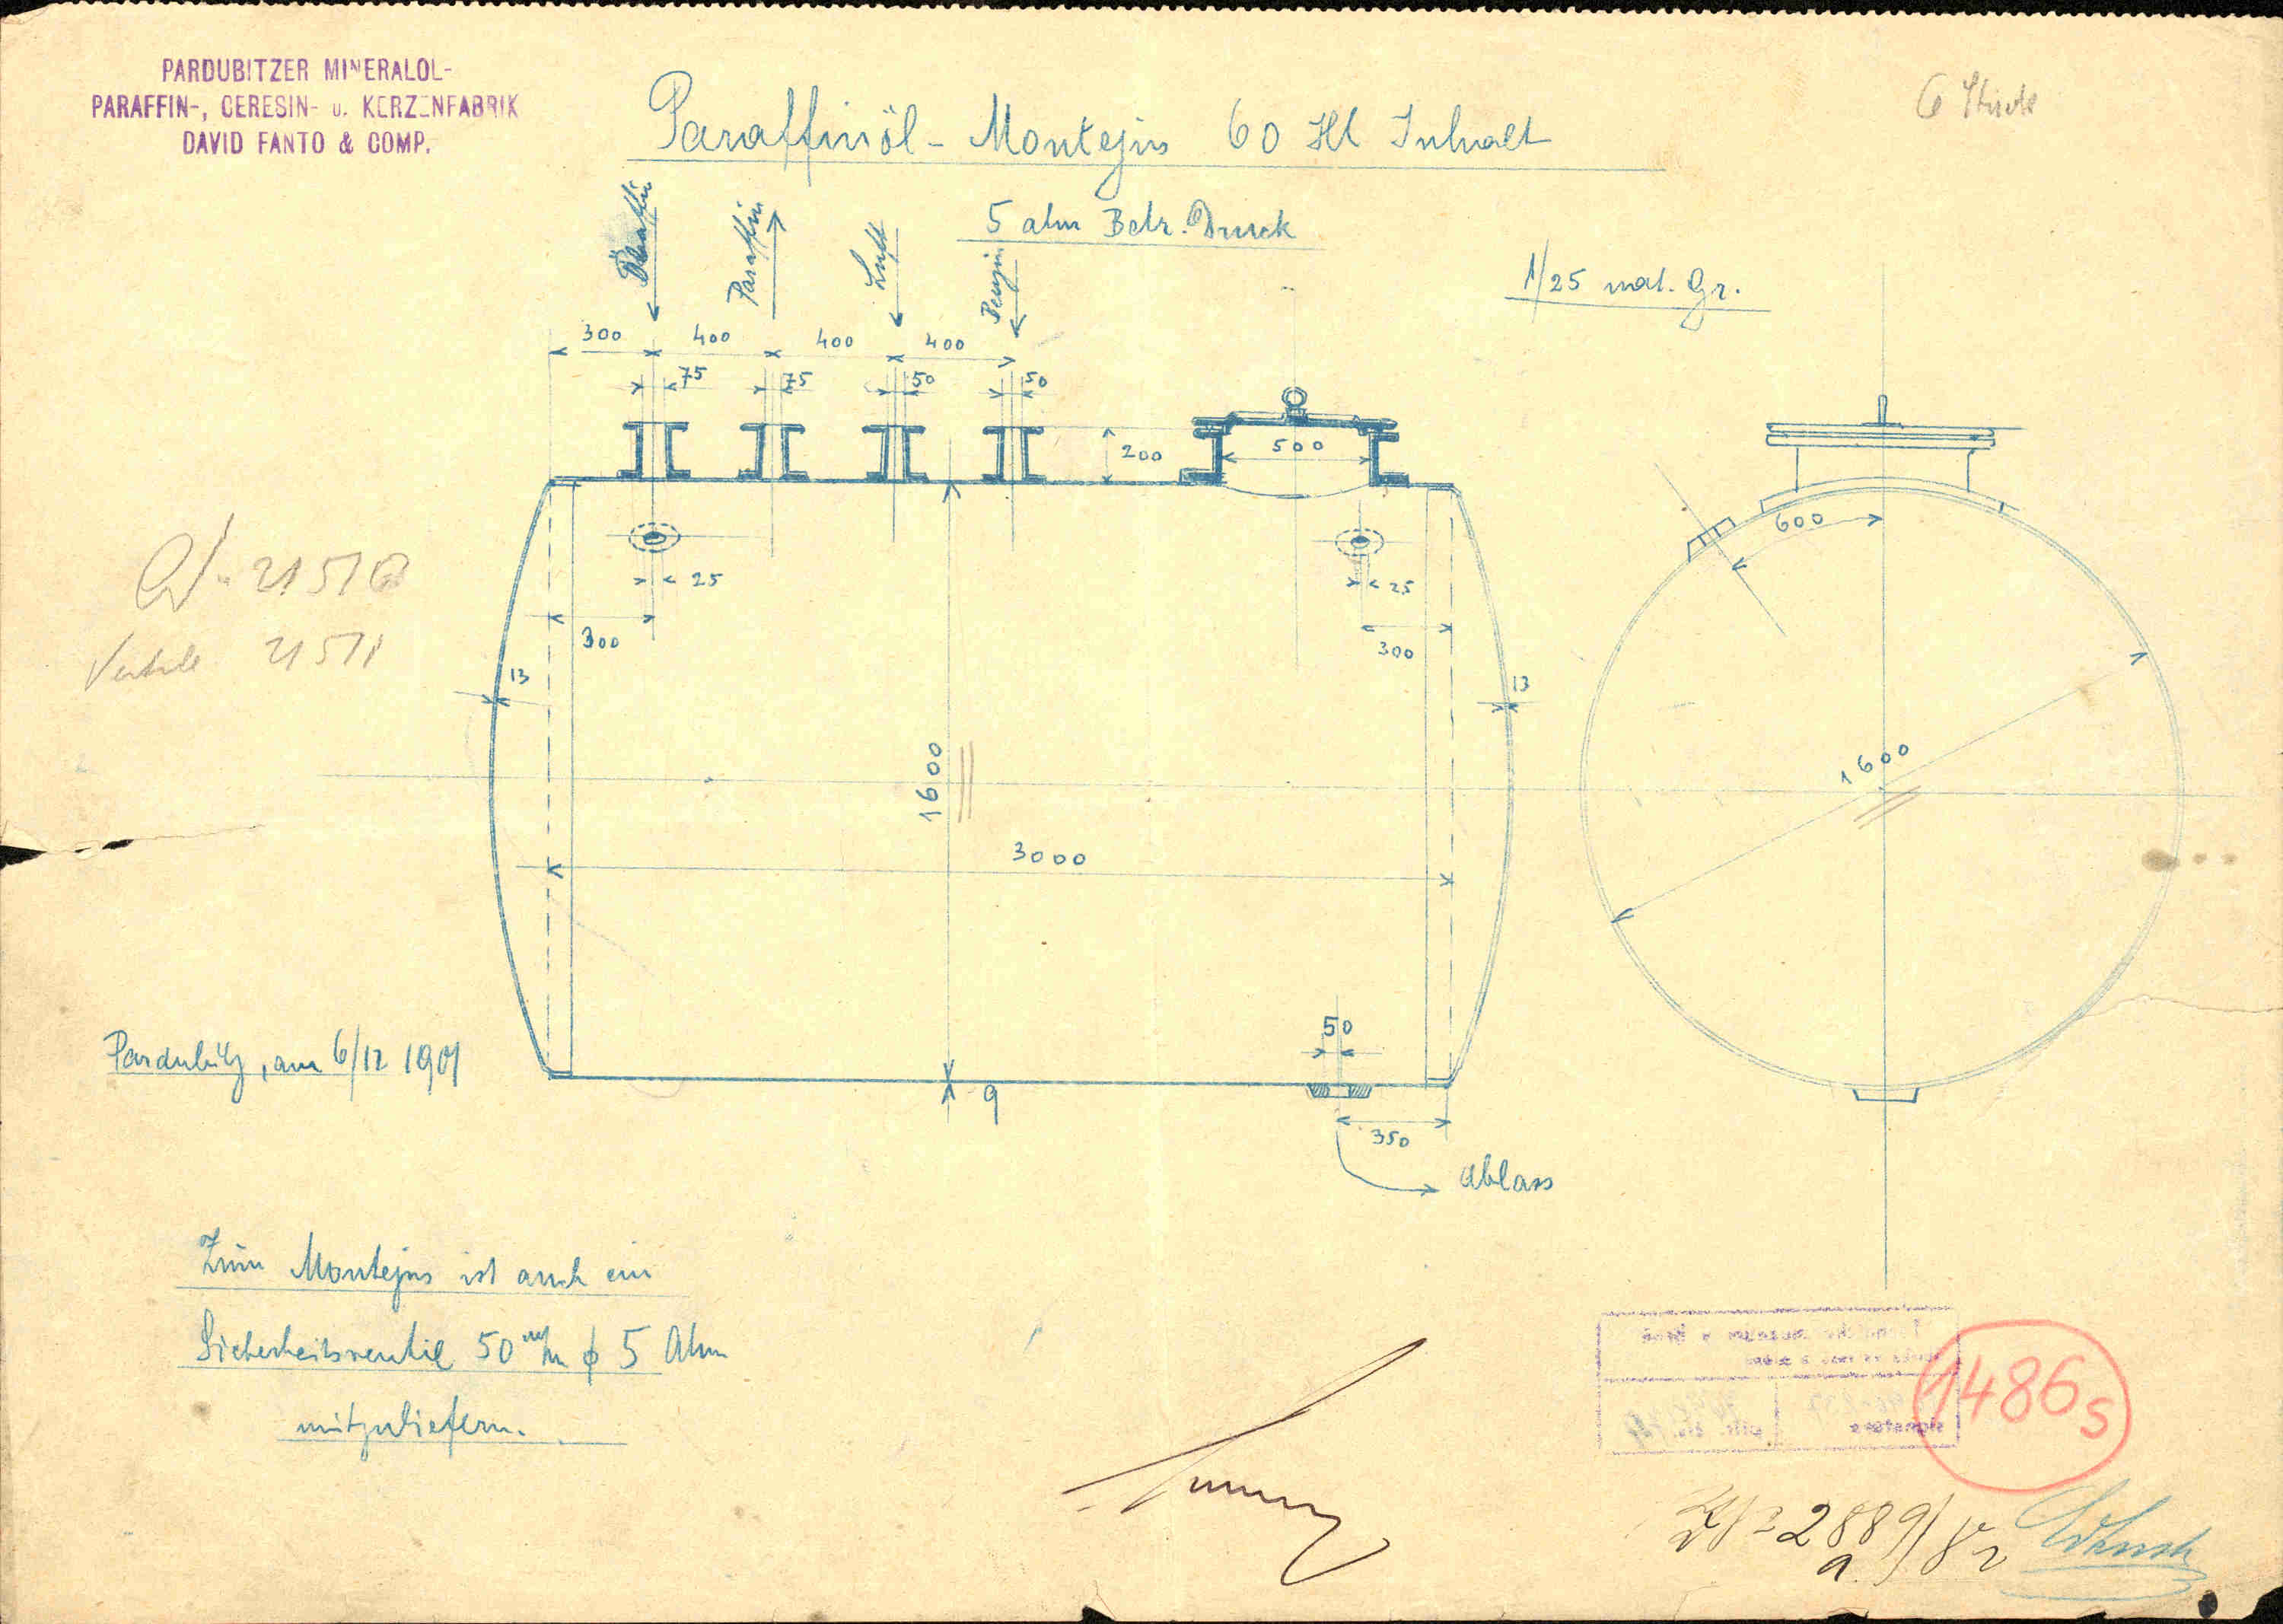 PARDUBITZER MINERALOL-
PARAFFIN-, CERESIN- u. KERZENFABRIK
DAVID FANTO & COMP.
Paraffinöl - Montejus 60 Hl Inhalt
6 Stück
5 atm Betr. Druck
1/25 nat. Gr.
Paraffin
Luft
Benzin
300 400 400 400
75 75 50 50
200
500
600
25
25
300
300
13
13
21510
Ventile 21511
1600
1600
3000
50
9
350
Ablass
Pardubitz, am 6/12 1901
Zum Montejus ist auch ein
Sicherheitsventil 50 m/m ϕ 5 Atm
mitzuliefern.
signatura
1486s
2889/
a